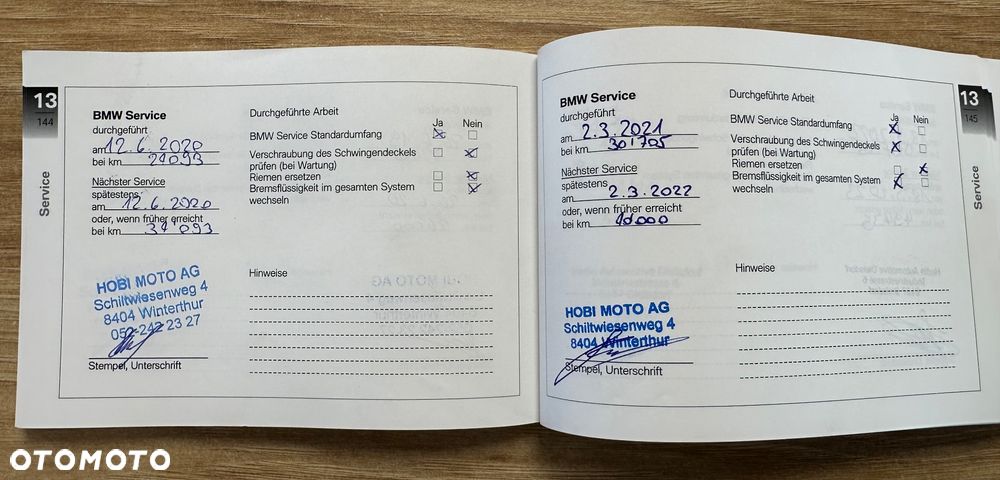 13
144
Service
BMW Service
durchgeführt
am 12.6.2020
bei km 21093
Nächster Service
spätestens
am 12.6.2020
oder, wenn früher erreicht
bei km 31'093
HOBI MOTO AG
Schiltwiesenweg 4
8404 Winterthur
052 242 23 27
Stempel, Unterschrift
Durchgeführte Arbeit
Ja Nein
BMW Service Standardumfang
Verschraubung des Schwingendeckels
prüfen (bei Wartung)
Riemen ersetzen
Bremsflüssigkeit im gesamten System
wechseln
Hinweise
13
145
Service
BMW Service
durchgeführt
am 2.3.2021
bei km 30'705
Nächster Service
spätestens
am 2.3.2022
oder, wenn früher erreicht
bei km
HOBI MOTO AG
Schiltwiesenweg 4
8404 Winterthur
Stempel, Unterschrift
Durchgeführte Arbeit
Ja Nein
BMW Service Standardumfang
Verschraubung des Schwingendeckels
prüfen (bei Wartung)
Riemen ersetzen
Bremsflüssigkeit im gesamten System
wechseln
Hinweise
OTOMOTO